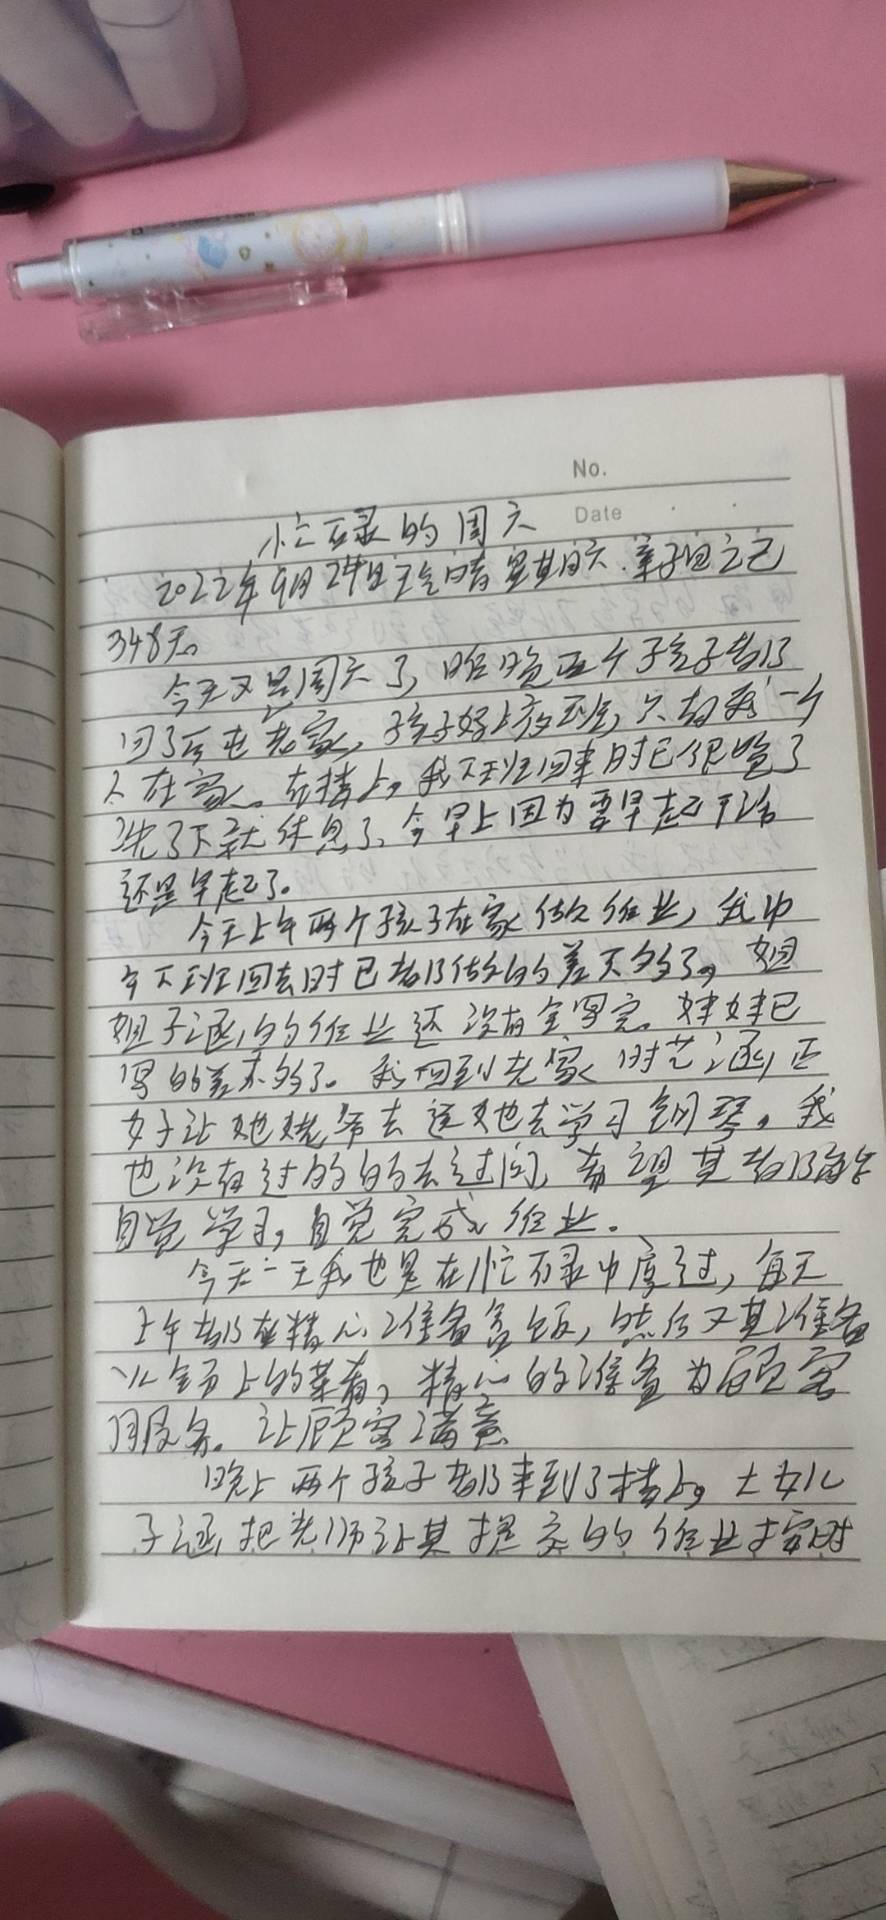 No.
Date
忙碌的周天
2022年9月24日 天气晴 星期天 亲子日记
348天。
今天又是周天了,昨晚五个孩子都
回了 老家,孩子好上 ,只有我一个
人在家。在楼上,我下班回来时已很晚了
洗了下就休息了,今早上因为要早起干活
还是早起了。
今天上午两个孩子在家做作业,我中
午下班回去时已都做的差不多了。姐
姐子涵的作业还没有全写完。妹妹已
写的差不多了。我回到老家时艺涵正
好让她姥爷去送她去学习钢琴。我
也没有过的的去过问,希望其都能
自觉学习,自觉完成作业。
今天一天我也是在忙碌中度过,每天
上午都在精心准备套饭,然后又其准备
业 上的菜肴,精心的准备为顾客
服务。让顾客满意
晚上两个孩子都来到了楼上。大女儿
子涵把老师让其提交的作业按时